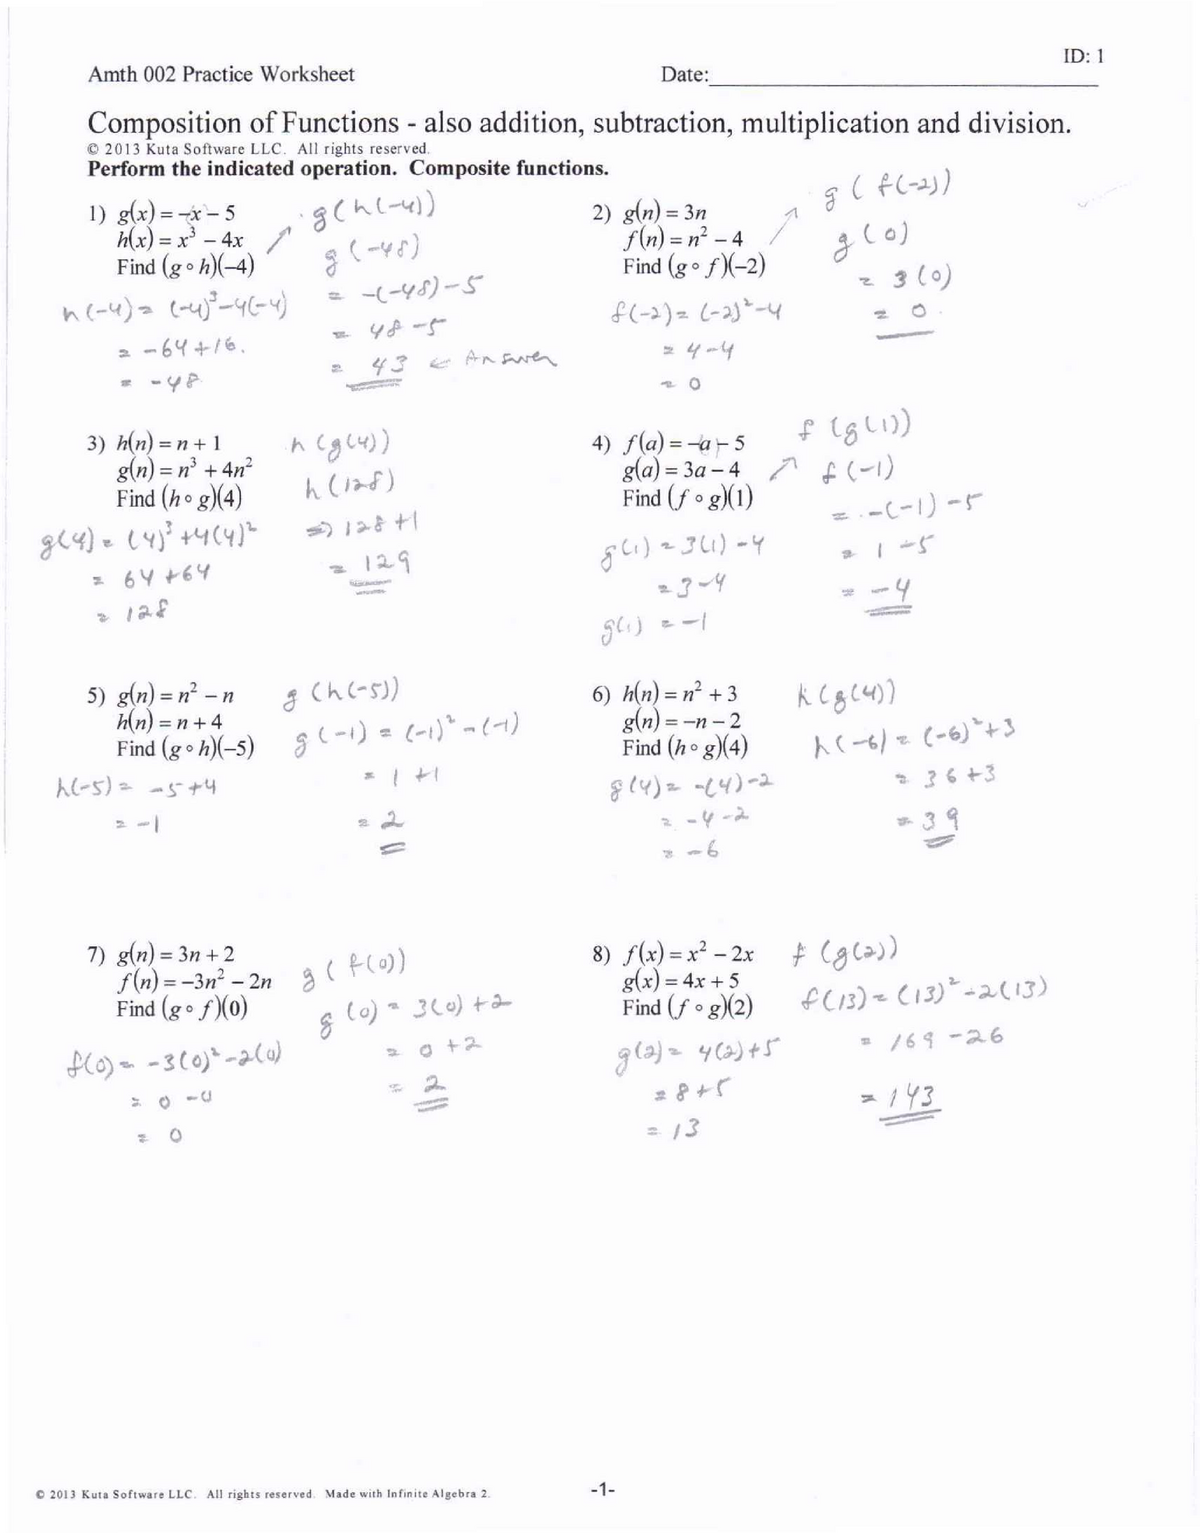 ID: 1
Amth 002 Practice Worksheet
Date:
Composition of Functions - also addition, subtraction, multiplication and division.
© 2013 Kuta Software LLC. All rights reserved.
Perform the indicated operation. Composite functions.
1) g(x) = −x − 5
h(x) = x³ − 4x
Find (g ∘ h)(−4)
h(-4) = (-4)³-4(-4)
= -64+16.
= -48
g(h(-4))
g(-48)
= -(-48)-5
= 48-5
= 43 ← Answer
2) g(n) = 3n
f(n) = n² − 4
Find (g ∘ f)(−2)
f(-2) = (-2)²-4
= 4-4
= 0
g(f(-2))
g(0)
= 3(0)
= 0.
3) h(n) = n + 1
g(n) = n³ + 4n²
Find (h ∘ g)(4)
g(4) = (4)³+4(4)²
= 64+64
= 128
h(g(4))
h(128)
⇒ 128+1
= 129
4) f(a) = −a − 5
g(a) = 3a − 4
Find (f ∘ g)(1)
g(1) = 3(1)-4
= 3-4
g(1) = -1
f(g(1))
f(-1)
= -(-1)-5
= 1-5
= -4
5) g(n) = n² − n
h(n) = n + 4
Find (g ∘ h)(−5)
h(-5) = -5+4
= -1
g(h(-5))
g(-1) = (-1)²-(-1)
= 1+1
= 2
6) h(n) = n² + 3
g(n) = −n − 2
Find (h ∘ g)(4)
g(4) = -(4)-2
= -4-2
= -6
h(g(4))
h(-6) = (-6)²+3
= 36+3
= 39
7) g(n) = 3n + 2
f(n) = −3n² − 2n
Find (g ∘ f)(0)
f(0) = -3(0)²-2(0)
= 0-0
= 0
g(f(0))
g(0) = 3(0)+2
= 0+2
= 2
8) f(x) = x² − 2x
g(x) = 4x + 5
Find (f ∘ g)(2)
g(2) = 4(2)+5
= 8+5
= 13
f(g(2))
f(13) = (13)²-2(13)
= 169-26
= 143
© 2013 Kuta Software LLC. All rights reserved. Made with Infinite Algebra 2.
-1-